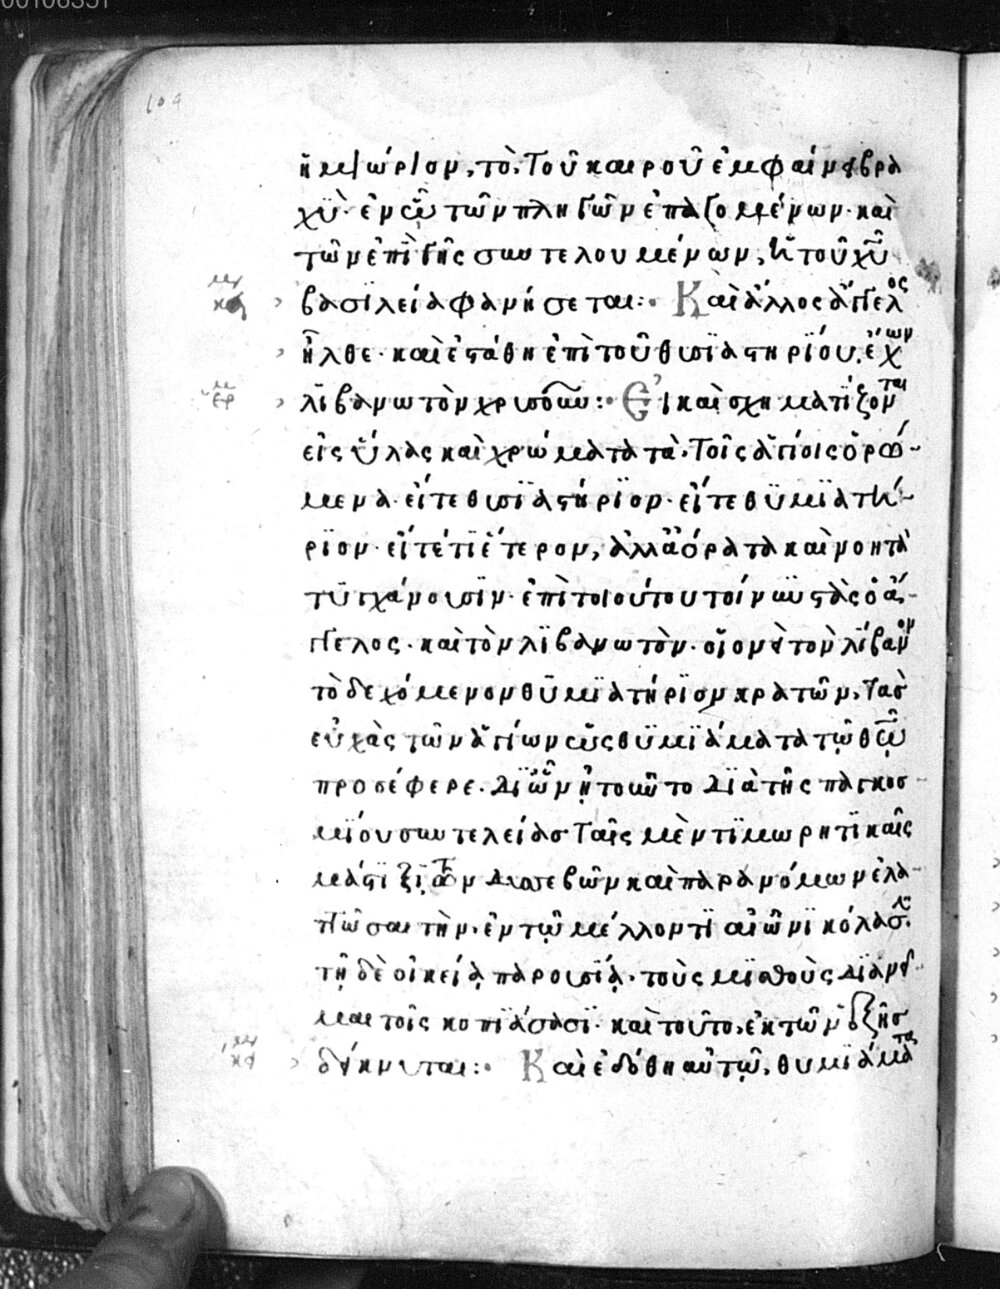 ἡμιώριον, τὸ τοῦ καιροῦ ἐμφαίνει βρα
χὺ· ἐν ᾧ τῶν πληγῶν ἐπαγομένων· καὶ
τῶν ἐπὶ γῆς συντελουμένων, ἡ τοῦ χῦ
κει βασϊλεία φανήσεται:· Καὶ ἄλλος ἄγγελος
ἦλθε· καὶ ἐστάθη ἐπὶ τοῦ θυσϊαστηρίου, ἔχων
ερ λϊβανωτὸν χρυσοῦν:· Εἰ καὶ σχηματίζονται
εἰς ὕλας καὶ χρώματα τὰ τοῖς ἁγίοις ὁρώ-
μενα· εἴτε θυσϊαστήριον· εἴτε θυμϊατή-
ριον· εἴτέ τϊ ἕτερον, ἀλλὰ ἀόρατα καὶ νοητὰ
τυγχάνουσϊν· ἐπὶ τοιούτου τοίνυν στὰς ὁ ἄγ-
γελος· καὶ τὸν λϊβανωτὸν· οἱονεὶ τὸν λίβανον
τὸ δεχόμενον θυμϊατήριον κρατῶν, τὰσ
εὐχὰς τῶν ἁγίων ὡς θυμϊάματα τῷ θῶ
προσέφερε· δϊ ὧν ᾐτοῦντο διὰ τῆς παγκοσ-
μίου συντελείασ ταῖς μὲν τϊμωρητϊκαῖς
μάστϊξϊ, τῶν δυσσεβῶν καὶ παρανόμων ἐλατ-
τῶσαι τὴν· ἐν τῷ μέλλοντϊ αἰῶνϊ κόλασϊν
τῇ δὲ οἰκείᾳ παρουσίᾳ· τοὺς μϊσθοὺς δϊανεῖ-
μαι τοῖς κοπϊάσασϊ· καὶ τοῦτο, ἐκ τῶν ἑξῆσ
κει δείκνυται:· Καὶ ἐδόθη αὐτῷ, θυμϊάματα